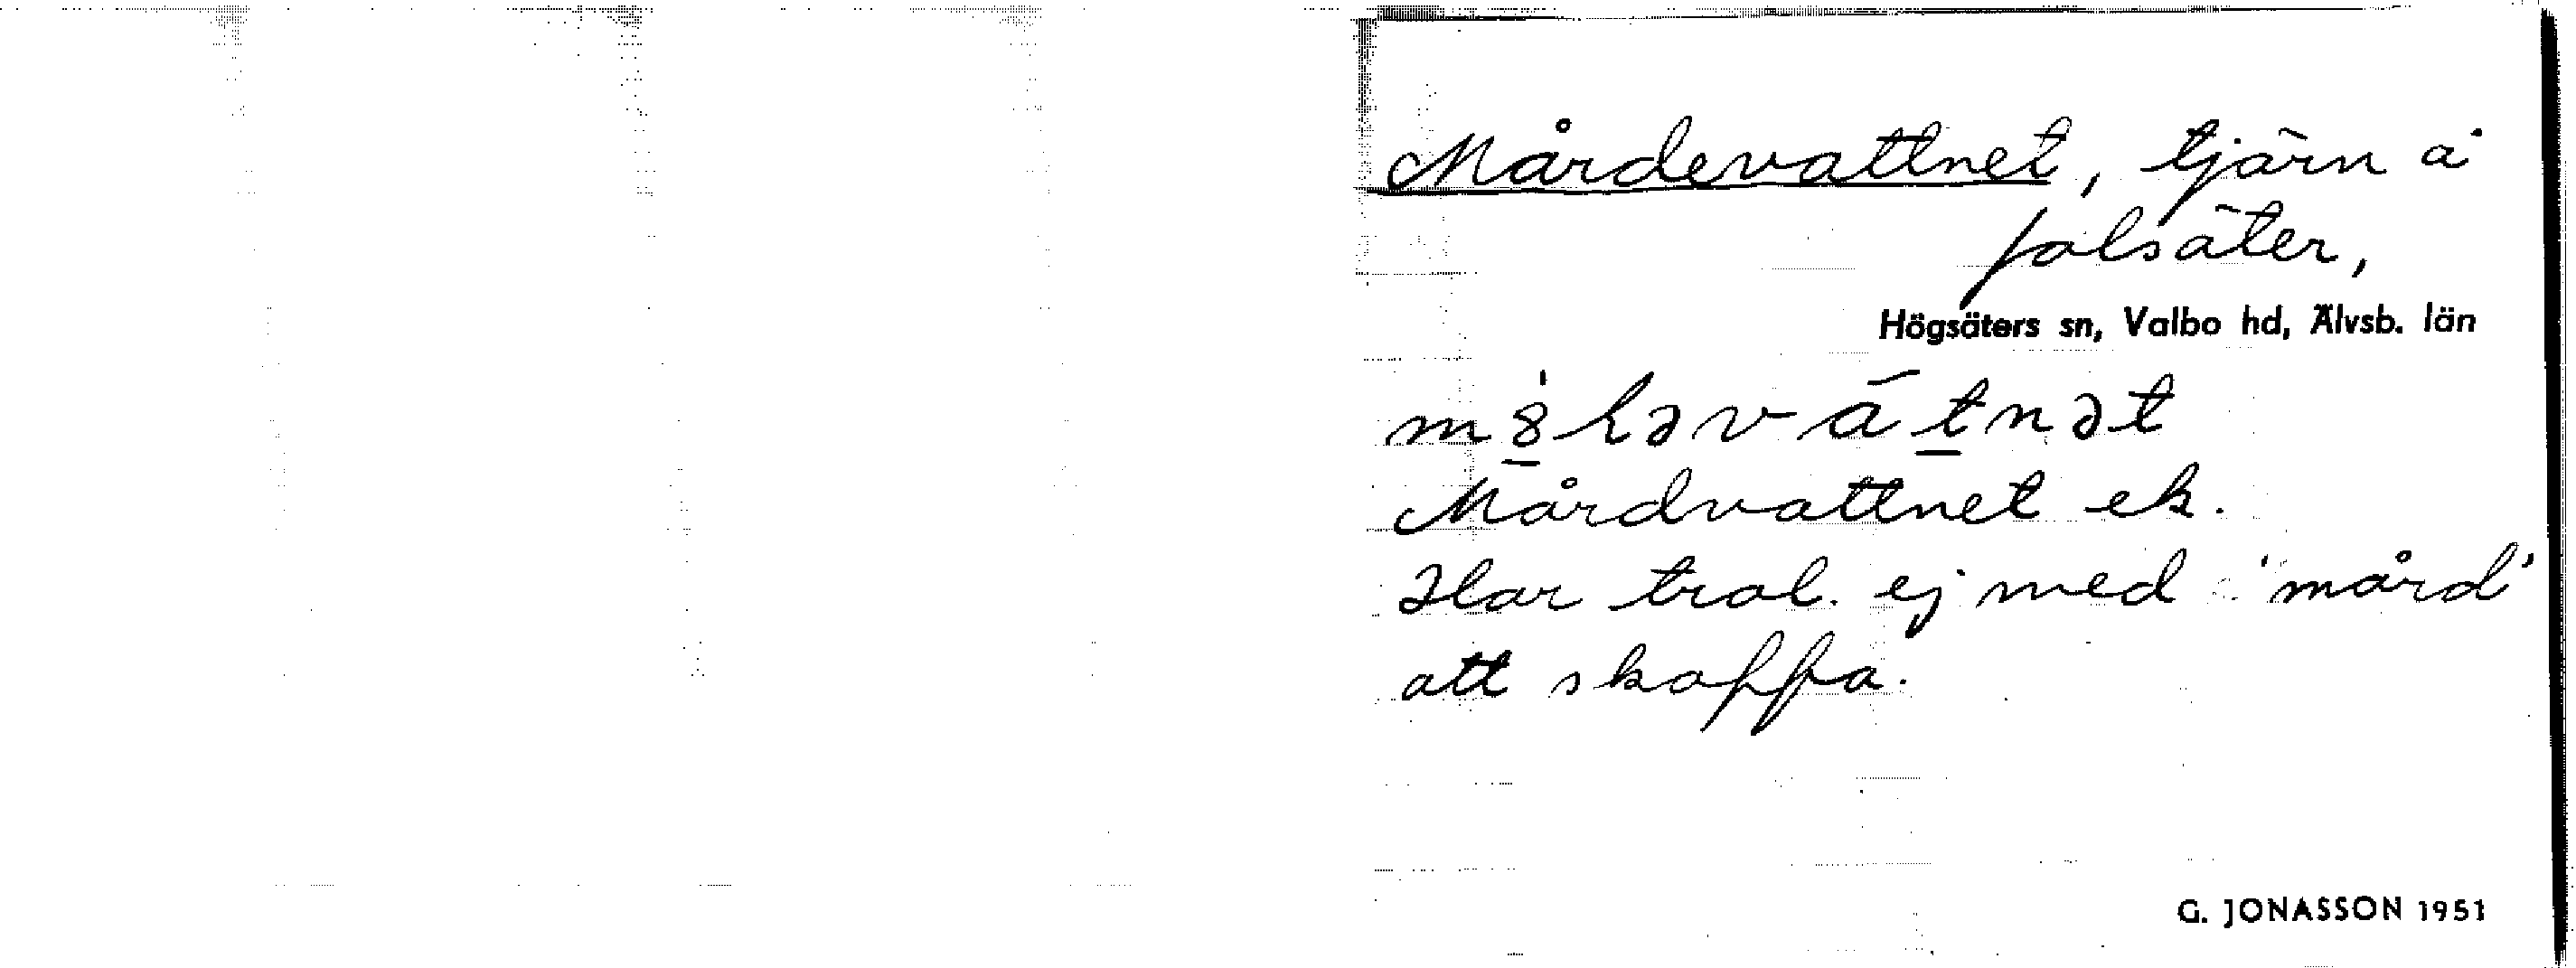 Mårdevattnet, tjärn å
Jolsäter,
Högsäters sn, Valbo hd, Älvsb. län
Mårdvattnet ek.
Har trol. ej med 'mård'
att skaffa.
G. JONASSON 1951